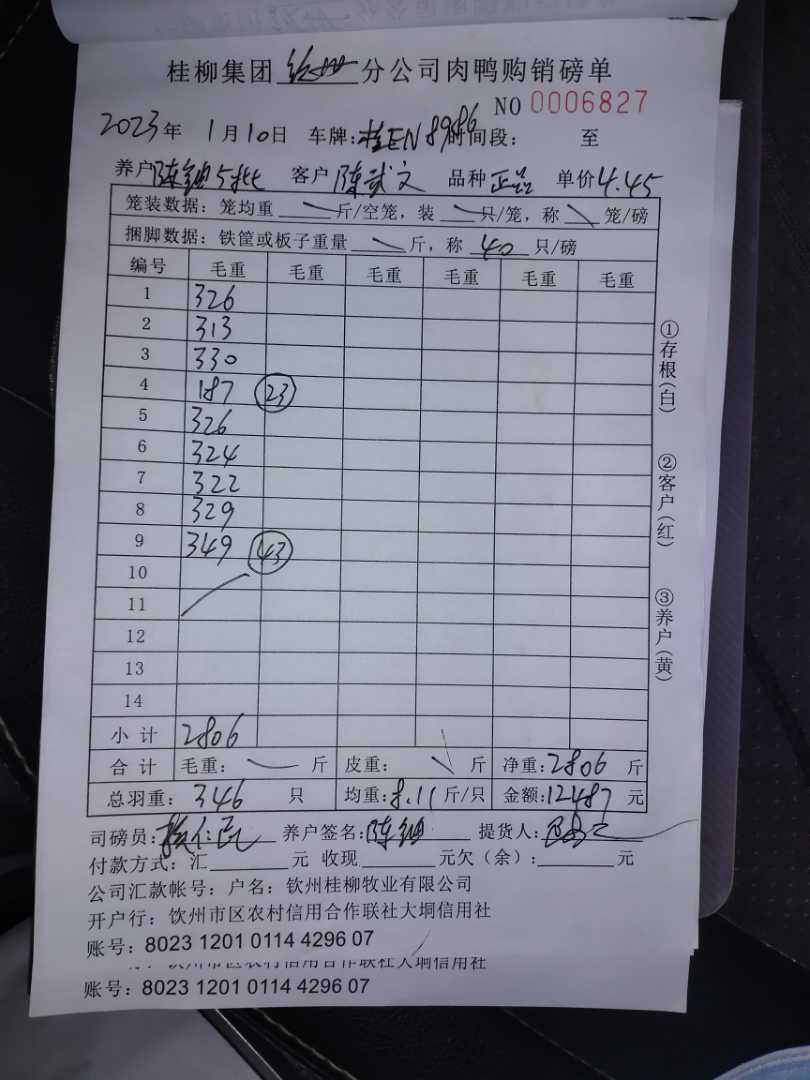 桂柳集团 钦州 分公司肉鸭购销磅单
NO 0006827
2023年 1月10日 车牌: 桂EN89986 时间段: 至
养户 陈钿5批 客户 陈武文 品种 正品 单价 4.45
笼装数据: 笼均重 斤/空笼, 装 只/笼, 称 笼/磅
捆脚数据: 铁筐或板子重量 斤, 称 40 只/磅
编号 毛重 毛重 毛重 毛重 毛重 毛重
1 326
2 313
3 330
4 187 23
5 326
6 324
7 322
8 329
9 349 43
10
11
12
13
14
小计 2806
合计 毛重: 斤 皮重: 斤 净重: 2806 斤
总羽重: 346 只 均重: 8.11 斤/只 金额: 12487 元
司磅员: 养户签名: 陈钿 提货人:
付款方式: 汇 元 收现 元欠(余): 元
公司汇款帐号: 户名: 钦州桂柳牧业有限公司
开户行: 饮州市区农村信用合作联社大垌信用社
账号: 8023 1201 0114 4296 07
饮州市区农村信用合作联社大垌信用社
账号: 8023 1201 0114 4296 07
①存根(白)
②客户(红)
③养户(黄)